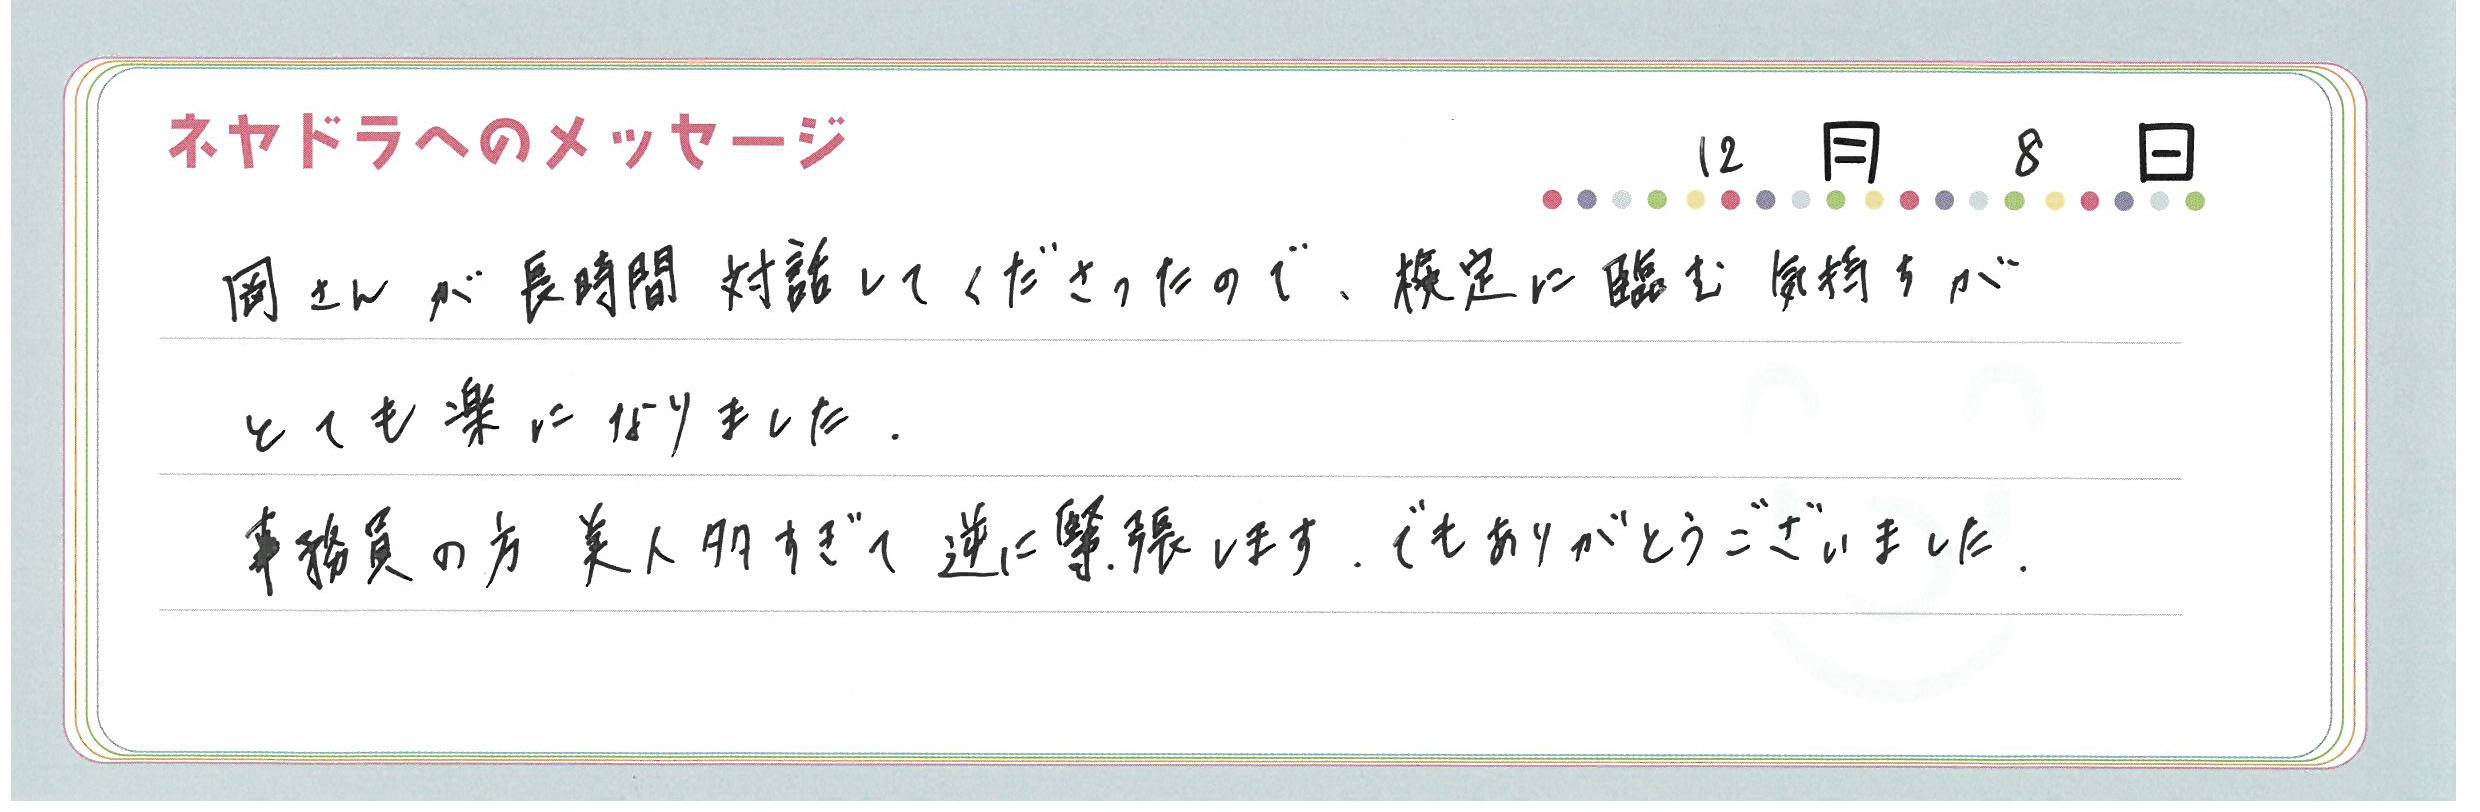 ネヤドラへのメッセージ
12月 8日
岡さんが長時間対話してくださったので、検定に臨む気持ちが
とても楽になりました.
事務員の方 美人多すぎて逆に緊張します. でもありがとうございました.